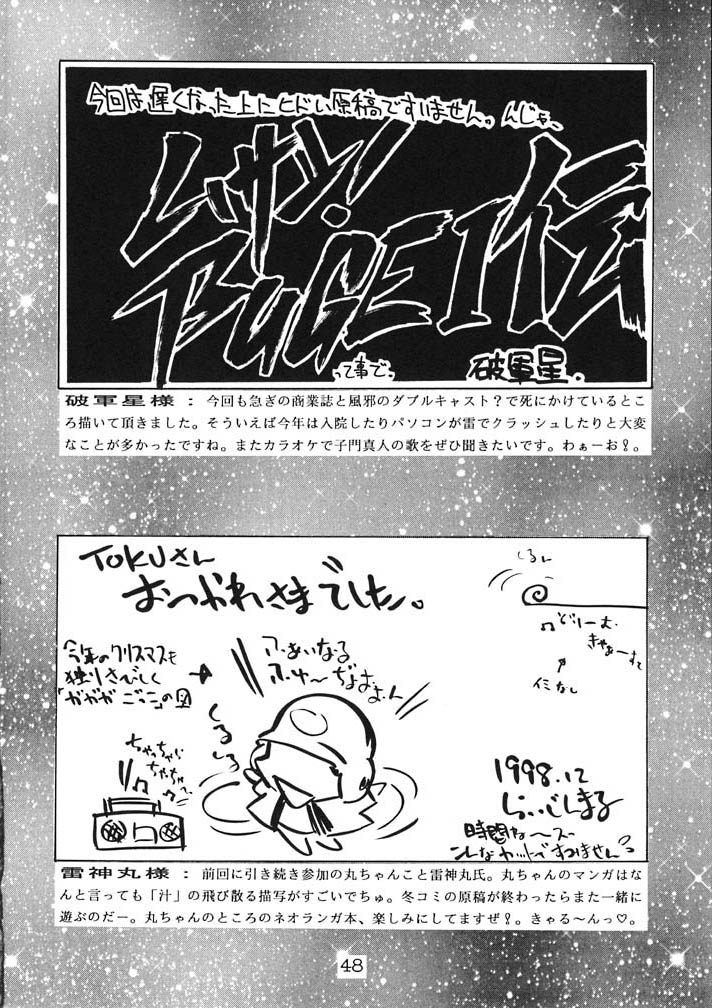 今回は遅くなった上にヒドい原稿ですいません。んじゃ、
ムサシ!
BUGEI伝
って事で。
破軍星.
破軍星様:今回も急ぎの商業誌と風邪のダブルキャスト?で死にかけているとこ
ろ描いて頂きました。そういえば今年は入院したりパソコンが雷でクラッシュしたりと大変
なことが多かったですね。またカラオケで子門真人の歌をぜひ聞きたいです。わぁーお!。
TOKUさん
おつかれさまでした。
今年のクリスマスも
独りさびしく
「ガガガごっこ」の図
ふぁいなる
ふゅーじょん
くるくる
ちゃっちゃら
ちゃちゃっ
くるん
どりーむ
きゃぁーすと
1998.12
らいじんまる
雷神丸様:前回に引き続き参加の丸ちゃんこと雷神丸氏。丸ちゃんのマンガはな
んと言っても「汁」の飛び散る描写がすごいでちゅ。冬コミの原稿が終わったらまた一緒に
遊ぶのだー。丸ちゃんのところのネオランガ本、楽しみにしてますぜ!。きゃる〜んっ♡。
48